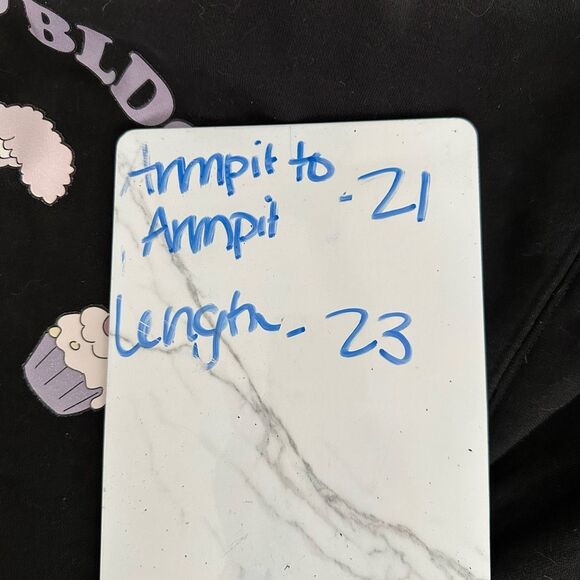 UBLD
Armpit to - 21
Armpit
Length - 23